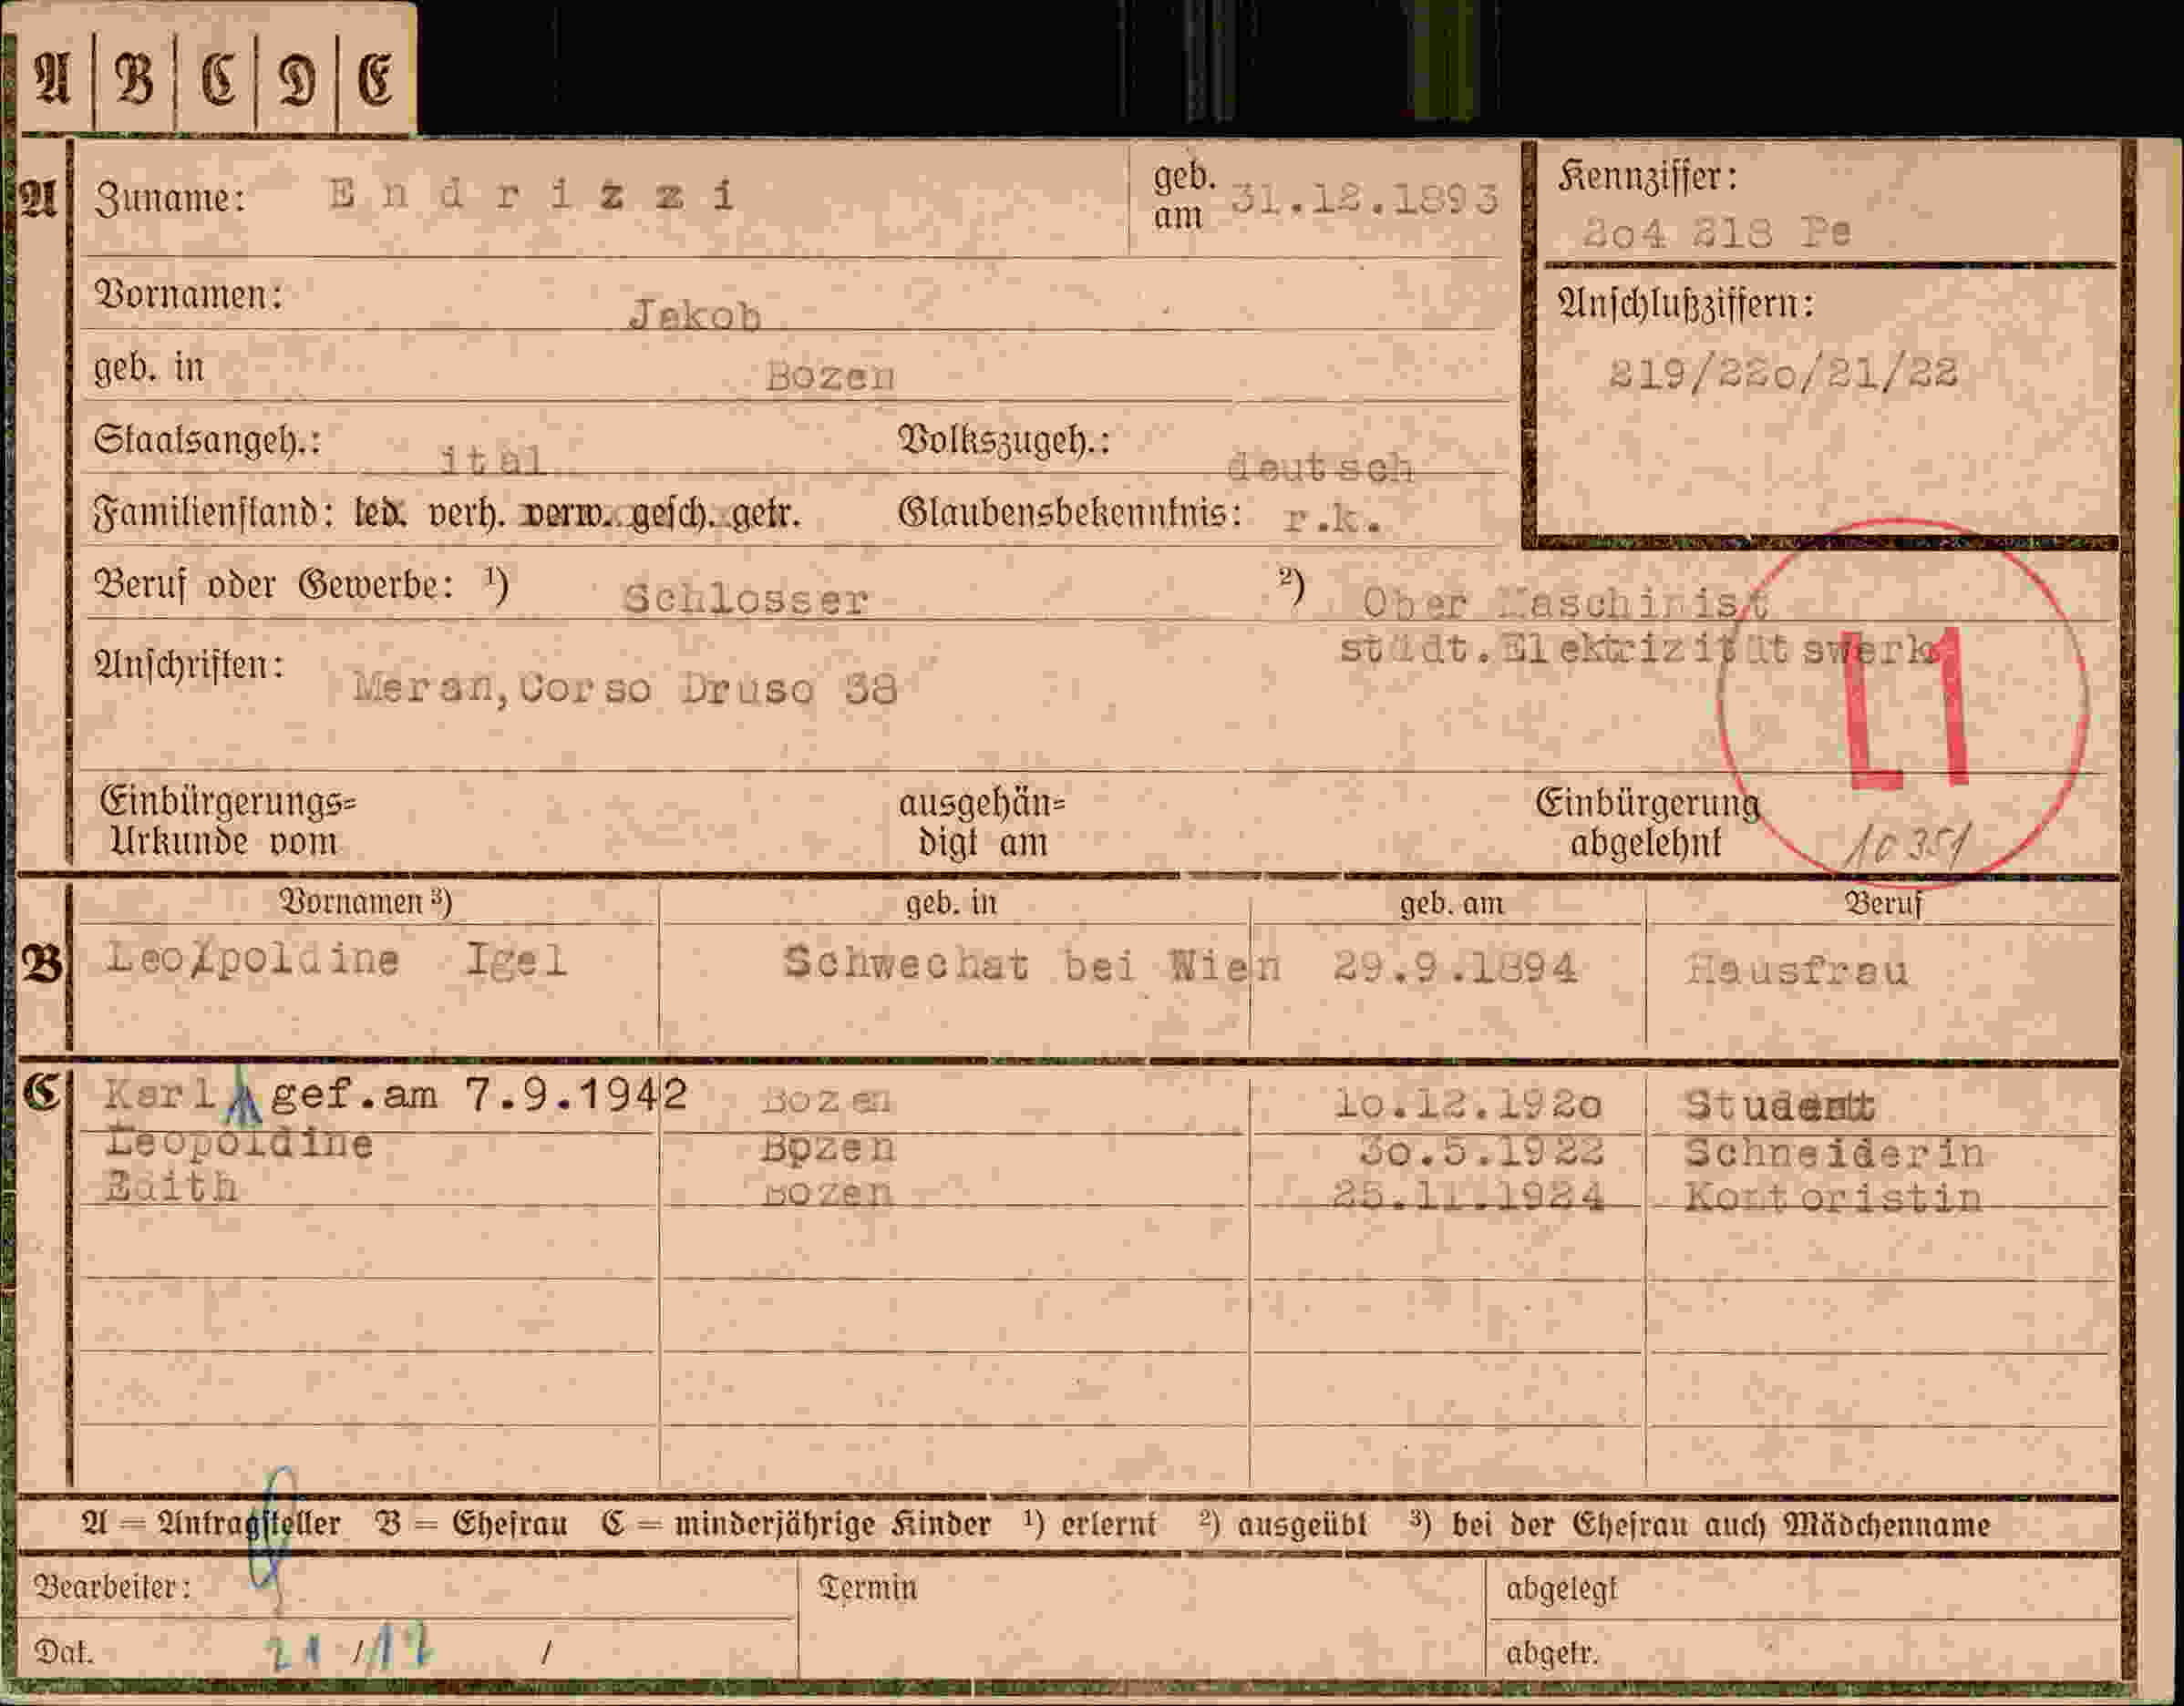 A B C D E
A Zuname: Endrizzi geb. am 31.12.1893 Kennziffer:
2o4 218 Pe
Vornamen: Jakob Anschlußziffern:
geb. in Bozen 219/22o/21/22
Staatsangeh.: ital Volkszugeh.: deutsch
Familienstand: led. verh. verw. gesch. getr. Glaubensbekenntnis: r.k.
Beruf oder Gewerbe: ¹) Schlosser ²) Ober Maschinist
städt.Elektrizitätswerk
Anschriften: Meran,Corso Druso 38
L1
Einbürgerungs= ausgehän= Einbürgerung
Urkunde vom digt am abgelehnt 10351
Vornamen ³) geb. in geb. am Beruf
B Leopoldine Igel Schwechat bei Wien 29.9.1894 Hausfrau
C Karl gef.am 7.9.1942 Bozen 1o.12.192o Student
Leopoldine Bozen 3o.5.1922 Schneiderin
Edith Bozen 25.11.1924 Kontoristin
A = Antragsteller B = Ehefrau C = minderjährige Kinder ¹) erlernt ²) ausgeübt ³) bei der Ehefrau auch Mädchenname
Bearbeiter: Termin abgelegt
Dat. 21/12 / abgetr.